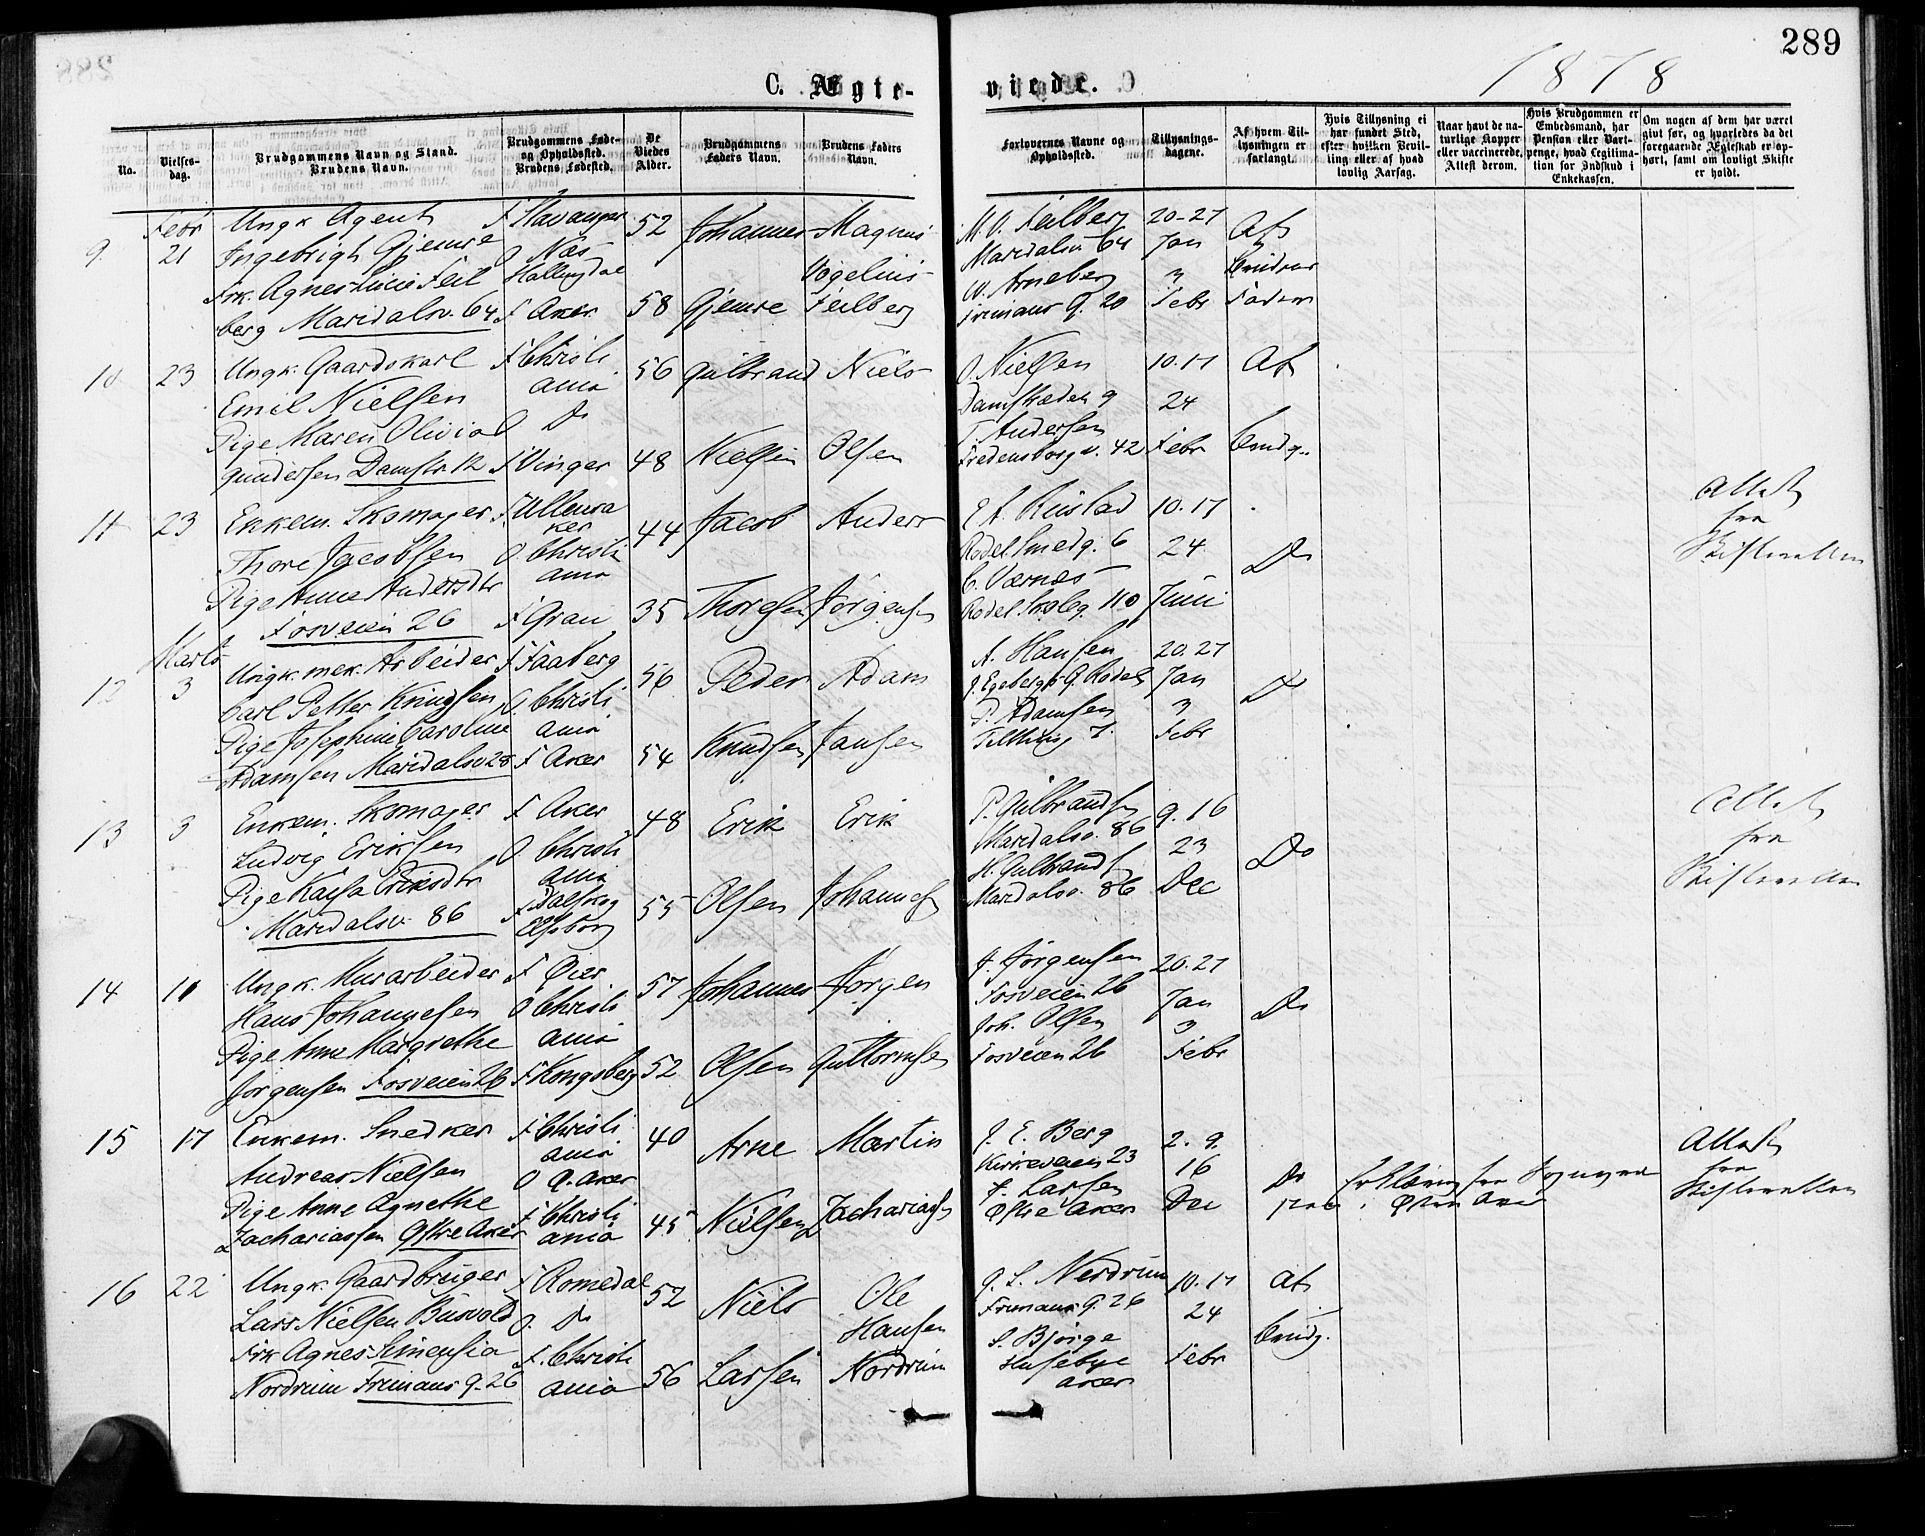 289
C. Ægte-
viede.
1878
No.
Vielses-
dag.
Brudgommens Navn og Stand.
Brudens Navn.
Brudgommens Føde-
og Opholdssted.
Brudens Fødested.
De
Viedes
Alder.
Brudgommens
Faders Navn.
Brudens Faders
Navn.
Forlovernes Navne og
Opholdssted.
Tillysnings-
dagene.
Af hvem Til-
lysningen er
forlangt.
Hvis Tillysning ei
har fundet Sted,
efter hvilken Bevil-
ling eller af hvad
lovlig Aarsag.
Naar havt de na-
turlige Kopper
eller vaccinerede,
Attest derom.
Hvis Brudgommen er
Embedsmand, har
Pension eller Vart-
penge, hvad Legitima-
tion for Indskud i
Enkekassen.
Om nogen af dem har været
givt før, og hvorledes da det
foregaaende Ægteskab er op-
hørt, samt om lovligt Skifte
er holdt.
9
Febr
21
Ungk. Agent
Ingebrigt Gjemre
Frk. Agnes Lucie Feil
berg Maridalsv. 64
F Stavanger
O Næs
Hallingdal
F Aker
52
58
Johannes
Gjemre
Magnus
Vogelius
Feilberg
M. V. Feilberg
Maridalsv 64
W. Arneberg
Frimans G. 20
20-27
Jan
3
Febr
Af
Brudens
Fader
10
23
Ungk. Gaardskarl
Emil Nielsen
Pige Maren Olivia
Gundersen Damstr. 12
F Christi
ania
O Do
F Vinger
56
48
Gulbrand
Nielsen
Niels
Olsen
O. Nielsen
Damstræde 9
T. Andersen
Fredensborgv. 42
10.17
24
Febr
Af
Brudg.
11
23
Enkem. Skomager
Thore Jacobsen
Pige Anne Andersdtr
Fosveien 26
F. Ullensa
ker
O. Christi
ania
F Gran
44
35
Jacob
Thoresen
Anders
Jørgensen
E. A. Rustad
Rodel. Smedg. 6
C. Værnes
10.17
24
Juni
Do
Attest
fra
Skifteretten
12
Marts
3
Ungk. mek. Arbeider
Carl Petter Knudsen
Pige Josephine Caroline
Adamsen Maridalsv 28
F Faaberg
O. Christi
ania
F Aker
56
54
Peder
Knudsen
Adam
Jansen
A. Hansen
J. Egebergs G. Rodel
P. Adamsen
20.27
Jan
3
Febr
Do
13
3
Enkem. Skomager
Ludvig Eriksen
Pige Kaisa Eriksdtr
Maridalsv. 86
F Aker
O. Christi
ania
F. Dalskog
Elfsborg
48
55
Erik
Olsen
Erik
Johannesen
P. Gulbrandsen
Maridalsv. 86
H. Gulbrandsen
Maridalsv. 86
9.16
23
Dec
Do
Attest
fra
Skifteretten
14
11
Ungk. Murarbeider
Hans Johannesen
Pige Anne Margrethe
Jørgensen Fosveien 26
F Øier
O Christi
ania
F Kongsberg
57
52
Johannes
Olsen
Jørgen
Guttormsen
J. Jørgensen
Fosveien 26
Joh. Olsen
Fosveien 26
20.27
Jan
3
Febr
Do
15
17
Enkem. Snedker
Andreas Nielsen
Pige Anne Agnethe
Zachariassen Østre Aker
F Christi
ania
O Ø. Aker
F Christi
ania
40
45
Arne
Nielsen
Martin
Zachariasen
J. E. Berg
Kirkeveien 23
F. Larsen
Østre Aker
2. 9.
16
Dec
Do
Erklæring fra Sogne
Attest
fra
Skifteretten
16
22
Ungk. Gaardbruger
Lars Nielsen Busvold
Frk Agnes Simensia
Nordrum Frimans g. 26
F Romedal
O. Do
F. Christi
ania
52
56
Niels
Larsen
Ole
Hansen
Nordrum
G. L. Nordrum
Frimans g. 26
S. Bjørge
Husebye
Aker
10.17
24
Febr
Af
Brudg.